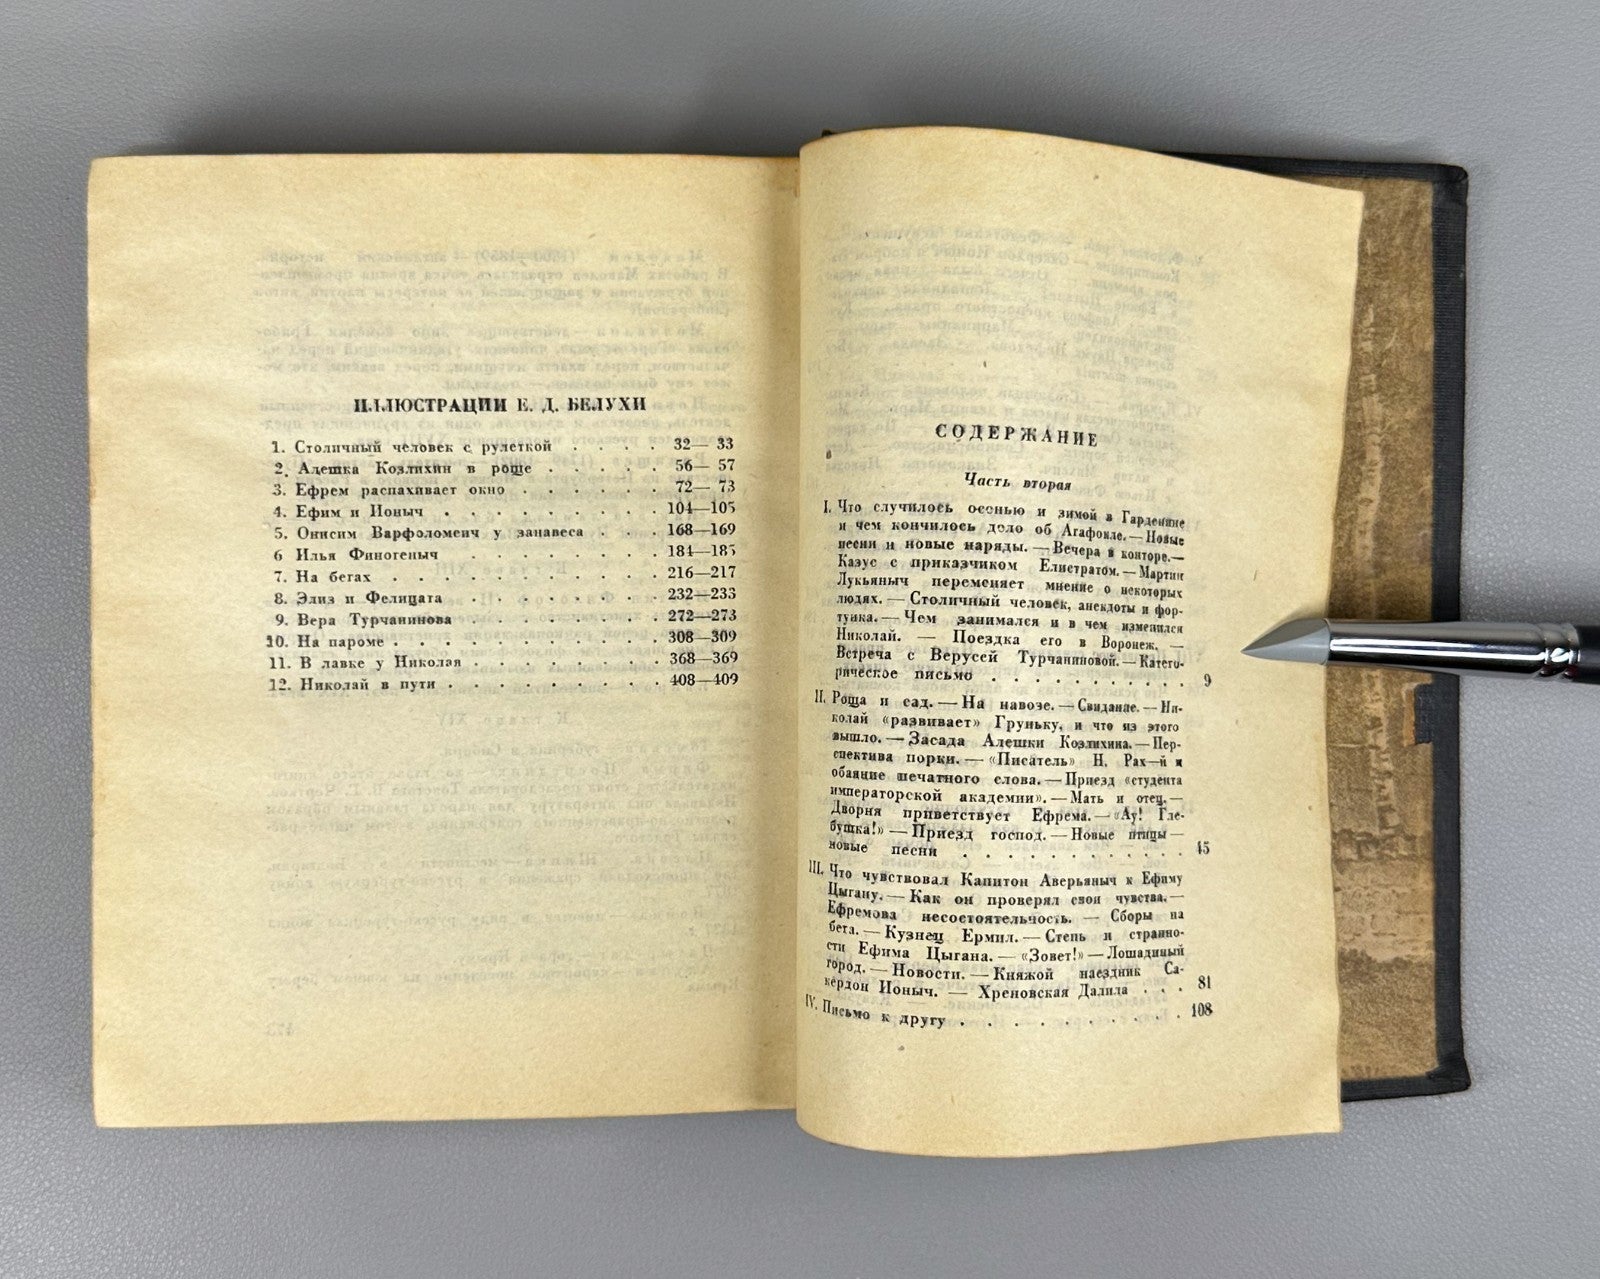 ИЛЛЮСТРАЦИИ Е. Д. БЕЛУХИ
1. Столичный человек с рулеткой . . . . 32— 33
2. Алешка Козлихин в роще . . . . . 56— 57
3. Ефрем распахивает окно . . . . . . 72— 73
4. Ефим и Ионыч . . . . . . . . . 104—105
5. Онисим Варфоломеич у занавеса . . . 168—169
6 Илья Финогеныч . . . . . . . . 184—185
7. На бегах . . . . . . . . . . . 216—217
8. Элиз и Фелицата . . . . . . . . 232—233
9. Вера Турчанинова . . . . . . . . 272—273
10. На пароме . . . . . . . . . . 308—309
11. В лавке у Николая . . . . . . . 368—369
12. Николай в пути . . . . . . . . . 408—409
СОДЕРЖАНИЕ
Часть вторая
I. Что случилось осенью и зимой в Гарденине
и чем кончилось дело об Агафокле. — Новые
песни и новые наряды. — Вечера в конторе. —
Казус с приказчиком Елистратом. — Мартин
Лукьяныч переменяет мнение о некоторых
людях. — Столичный человек, анекдоты и фор-
тунка. — Чем занимался и в чем изменился
Николай. — Поездка его в Воронеж. —
Встреча с Верусей Турчаниновой. — Катего-
рическое письмо . . . . . . . . . . . 9
II. Роща и сад. — На навозе. — Свидание. — Ни-
колай «развивает» Груньку, и что из этого
вышло. — Засада Алешки Козлихина. — Пер-
спектива порки. — «Писатель» Н. Рах—й и
обаяние печатного слова. — Приезд «студента
императорской академии». — Мать и отец. —
Дворня приветствует Ефрема. — «Ау! Гле-
бушка!» — Приезд господ. — Новые птицы —
новые песни . . . . . . . . . . . 45
III. Что чувствовал Капитон Аверьяныч к Ефиму
Цыгану. — Как он проверял свои чувства. —
Ефремова несостоятельность. — Сборы на
бега. — Кузнец Ермил. — Степь и странно-
сти Ефима Цыгана. — «Зовет!» — Лошадиный
город. — Новости. — Княжой наездник Са-
кердон Ионыч. — Хреновская Далила . . . 81
IV. Письмо к другу . . . . . . . . . . 108